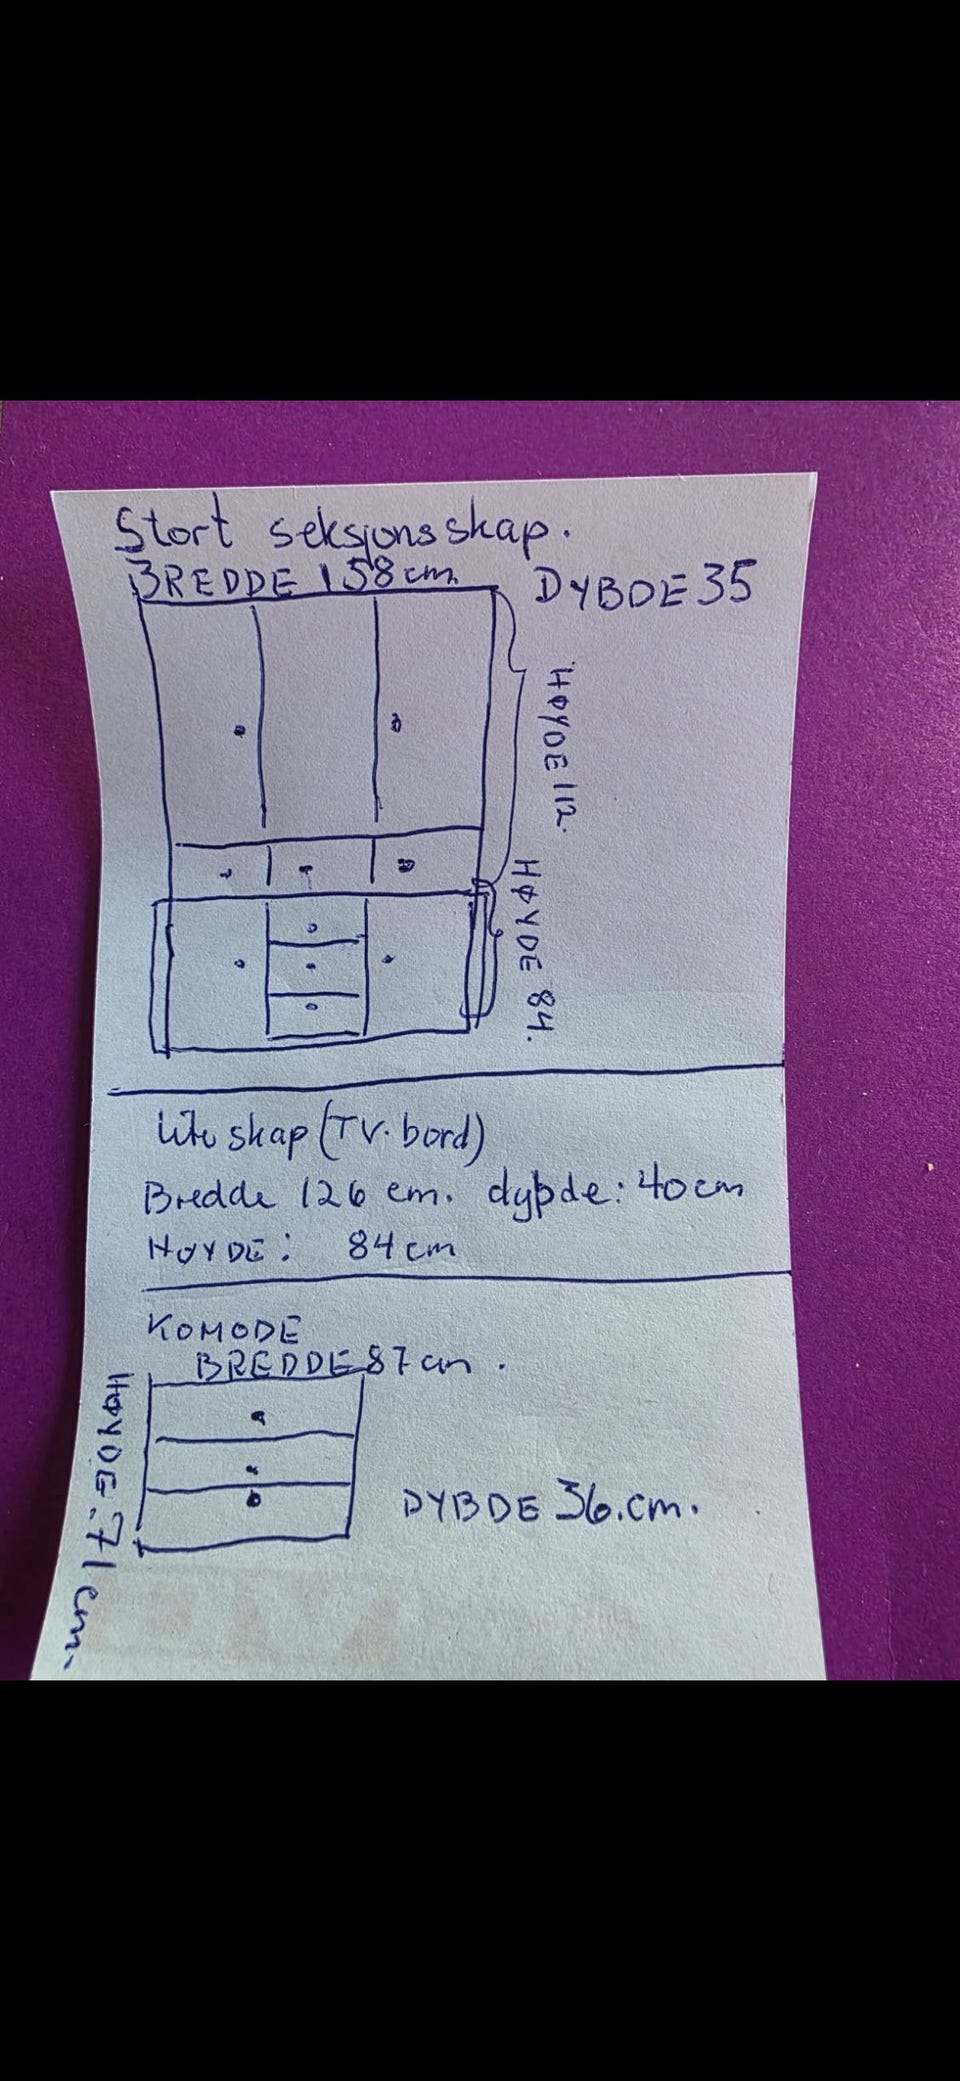 Stort seksjonsskap.
BREDDE 158 cm.
DYBDE 35
HØYDE 112.
HØYDE 84.
Lite skap (TV. bord)
Bredde 126 cm. dybde: 40 cm
HØYDE: 84 cm
KOMODE
BREDDE 87 cm.
HØYDE. 71 cm.
DYBDE 36.cm.